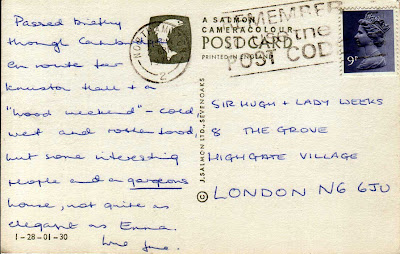 Passed briefly
through Cambridge
en route for
Knuston Hall + a
"wood weekend" - cold
wet and rotten food
but some interesting
people and a gorgeous
house, not quite as
elegant as Emma.
Love
1-28-01-30
A SALMON
CAMERACOLOUR
POST CARD
PRINTED IN ENGLAND
© J. SALMON LTD., SEVENOAKS
NORTHAM
2
REMEMBER
the
POST CODE
9P
SIR HUGH + LADY WEEKS
8 THE GROVE
HIGHGATE VILLAGE
LONDON N6 6JU